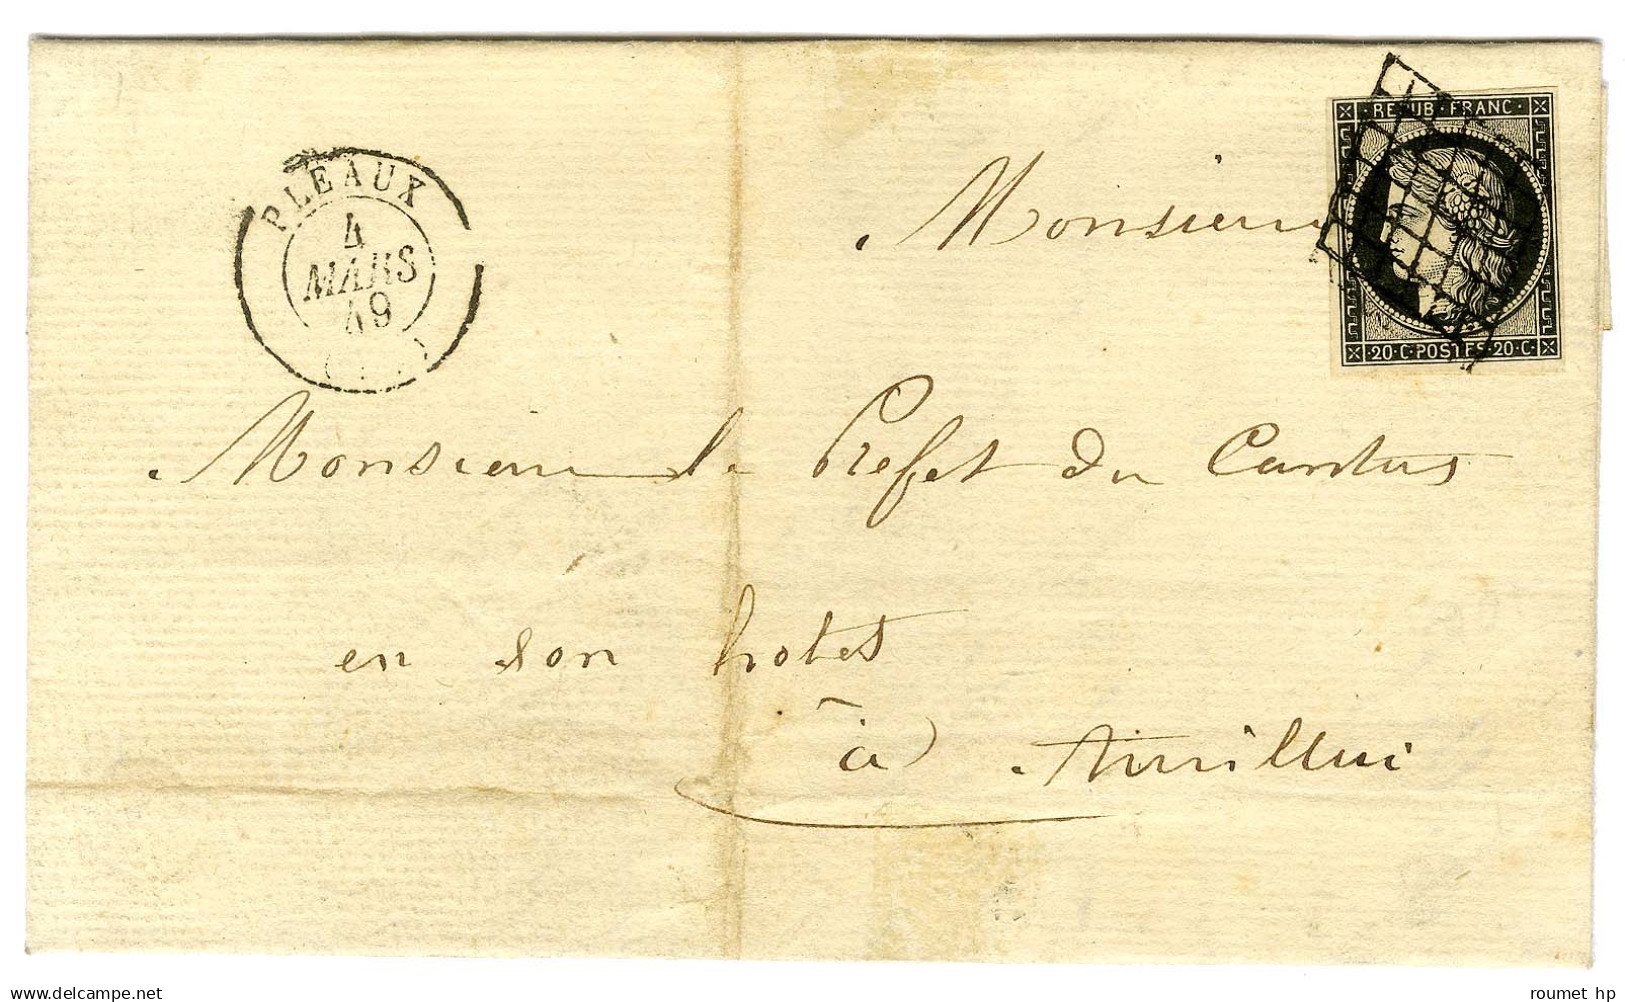 REPUB·FRANC·
PLEAUX
4
MARS
49
Monsieur
20·C·POSTES·20·C·
Monsieur le Prefet du Cantal
en son hotel
à Aurillac
www.delcampe.net
roumet hp